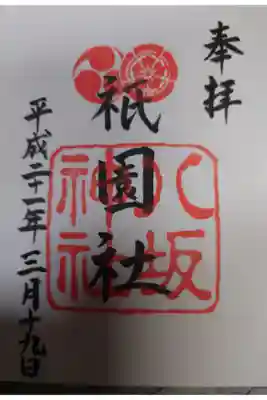 奉拝
八坂
神社
祇園社
平成二十一年三月十九日